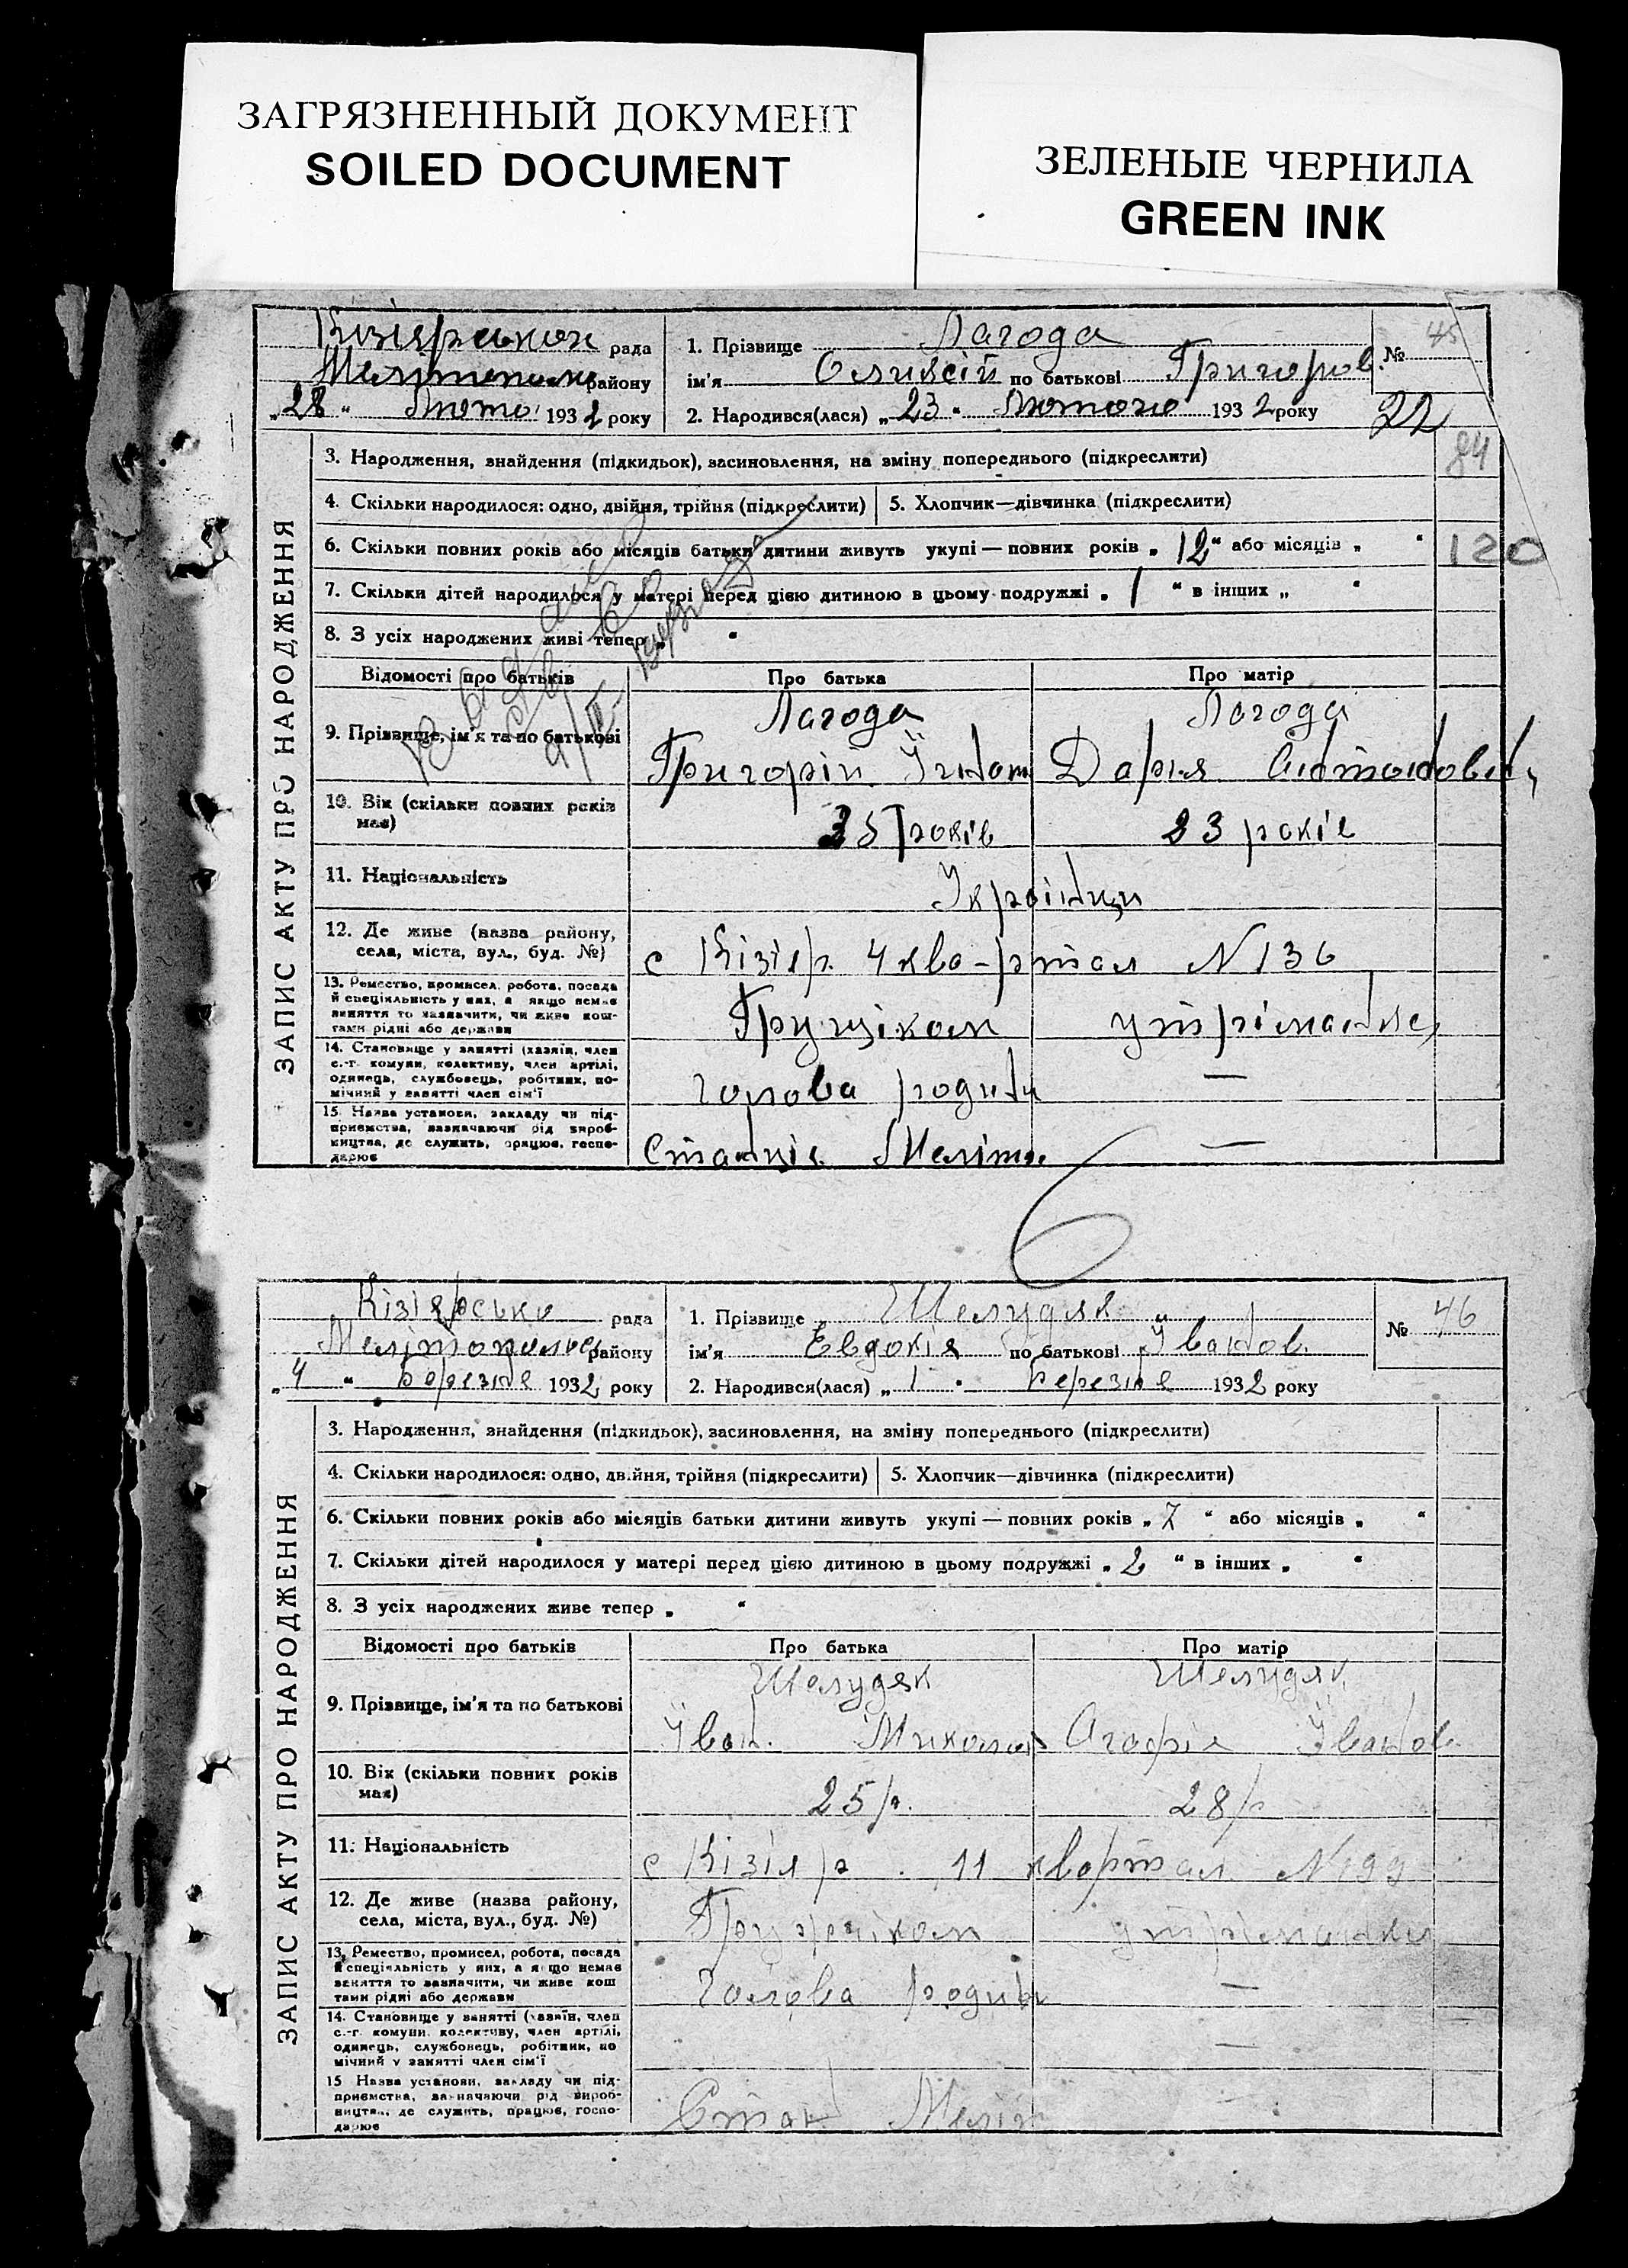 ЗАГРЯЗНЕННЫЙ ДОКУМЕНТ
SOILED DOCUMENT
ЗЕЛЕНЫЕ ЧЕРНИЛА
GREEN INK
ЗАПИС АКТУ ПРО НАРОДЖЕННЯ
рада
району
„28“ 1932 року
1. Прізвище Лагода
ім'я Оликсій по батькові Григоров.
2. Народився(лася) „23“ Лютого 1932 року
№ 45
22
84
3. Народження, знайдення (підкидьок), засиновлення, на зміну попереднього (підкреслити)
4. Скільки народилося: одно, двійня, трійня (підкреслити) 5. Хлопчик—дівчинка (підкреслити)
6. Скільки повних років або місяців батьки дитини живуть укупі — повних років „12“ або місяців „ “
120
7. Скільки дітей народилося у матері перед цією дитиною в цьому подружжі „1“ в інших „ “
8. З усіх народжених живі тепер „ “
Відомості про батьків Про батька Про матір
9. Прізвище, ім'я та по батькові
Лагода Лагода
Григорій Дария
10. Вік (скільки повних років має)
35 років 23 років
11. Національність
Українци
12. Де живе (назва району, села, міста, вул., буд. №)
с Кізіяр. 4 ква-ртал N 136
13. Ремество, промисел, робота, посада
й спеціяльність у них, а якщо немає
заняття то зазначити, чи живе кош-
тами рідні або держави
Грущіком утріманка
14. Становище у занятті (хазяїн, член
с.-г. комуни, колективу, член артілі,
одинець, службовець, робітник, по-
мічний у занятті член сім'ї
голова родини —
15. Назва установи, закладу чи під-
приємства, зазначаючи рід вироб-
ництва, де служить, працює, госпо-
дарює
Станція Меліто. —
6
ЗАПИС АКТУ ПРО НАРОДЖЕННЯ
Кізіярська рада
району
„4“ Березня 1932 року
1. Прізвище Шелудяк
ім'я Евдокія по батькові Іванов.
2. Народився(лася) „1“ Березня 1932 року
№ 46
3. Народження, знайдення (підкидьок), засиновлення, на зміну попереднього (підкреслити)
4. Скільки народилося: одно, двійня, трійня (підкреслити) 5. Хлопчик—дівчинка (підкреслити)
6. Скільки повних років або місяців батьки дитини живуть укупі — повних років „7“ або місяців „ “
7. Скільки дітей народилося у матері перед цією дитиною в цьому подружжі „2“ в інших „ “
8. З усіх народжених живе тепер „ “
Відомості про батьків Про батька Про матір
9. Прізвище, ім'я та по батькові
Шелудяк Шелудяк
Іван. Микола Агафія Іванов.
10. Вік (скільки повних років має)
25 р. 28 р
11. Національність
с Кізіяр. 11 квартал N 199
12. Де живе (назва району, села, міста, вул., буд. №)
утріманка
13. Ремество, промисел, робота, посада
й спеціяльність у них, а якщо немає
заняття то зазначити, чи живе кош
тами рідні або держави
Голова родини —
14. Становище у занятті (хазяїн, член
с.-г. комуни, колективу, член артілі,
одинець, службовець, робітник, по
мічний у занятті член сім'ї
—
15 Назва установи, закладу чи під-
приємства, зазначаючи рід вироб-
ництва, де служить, працює, госпо-
дарює
Стан. Меліт